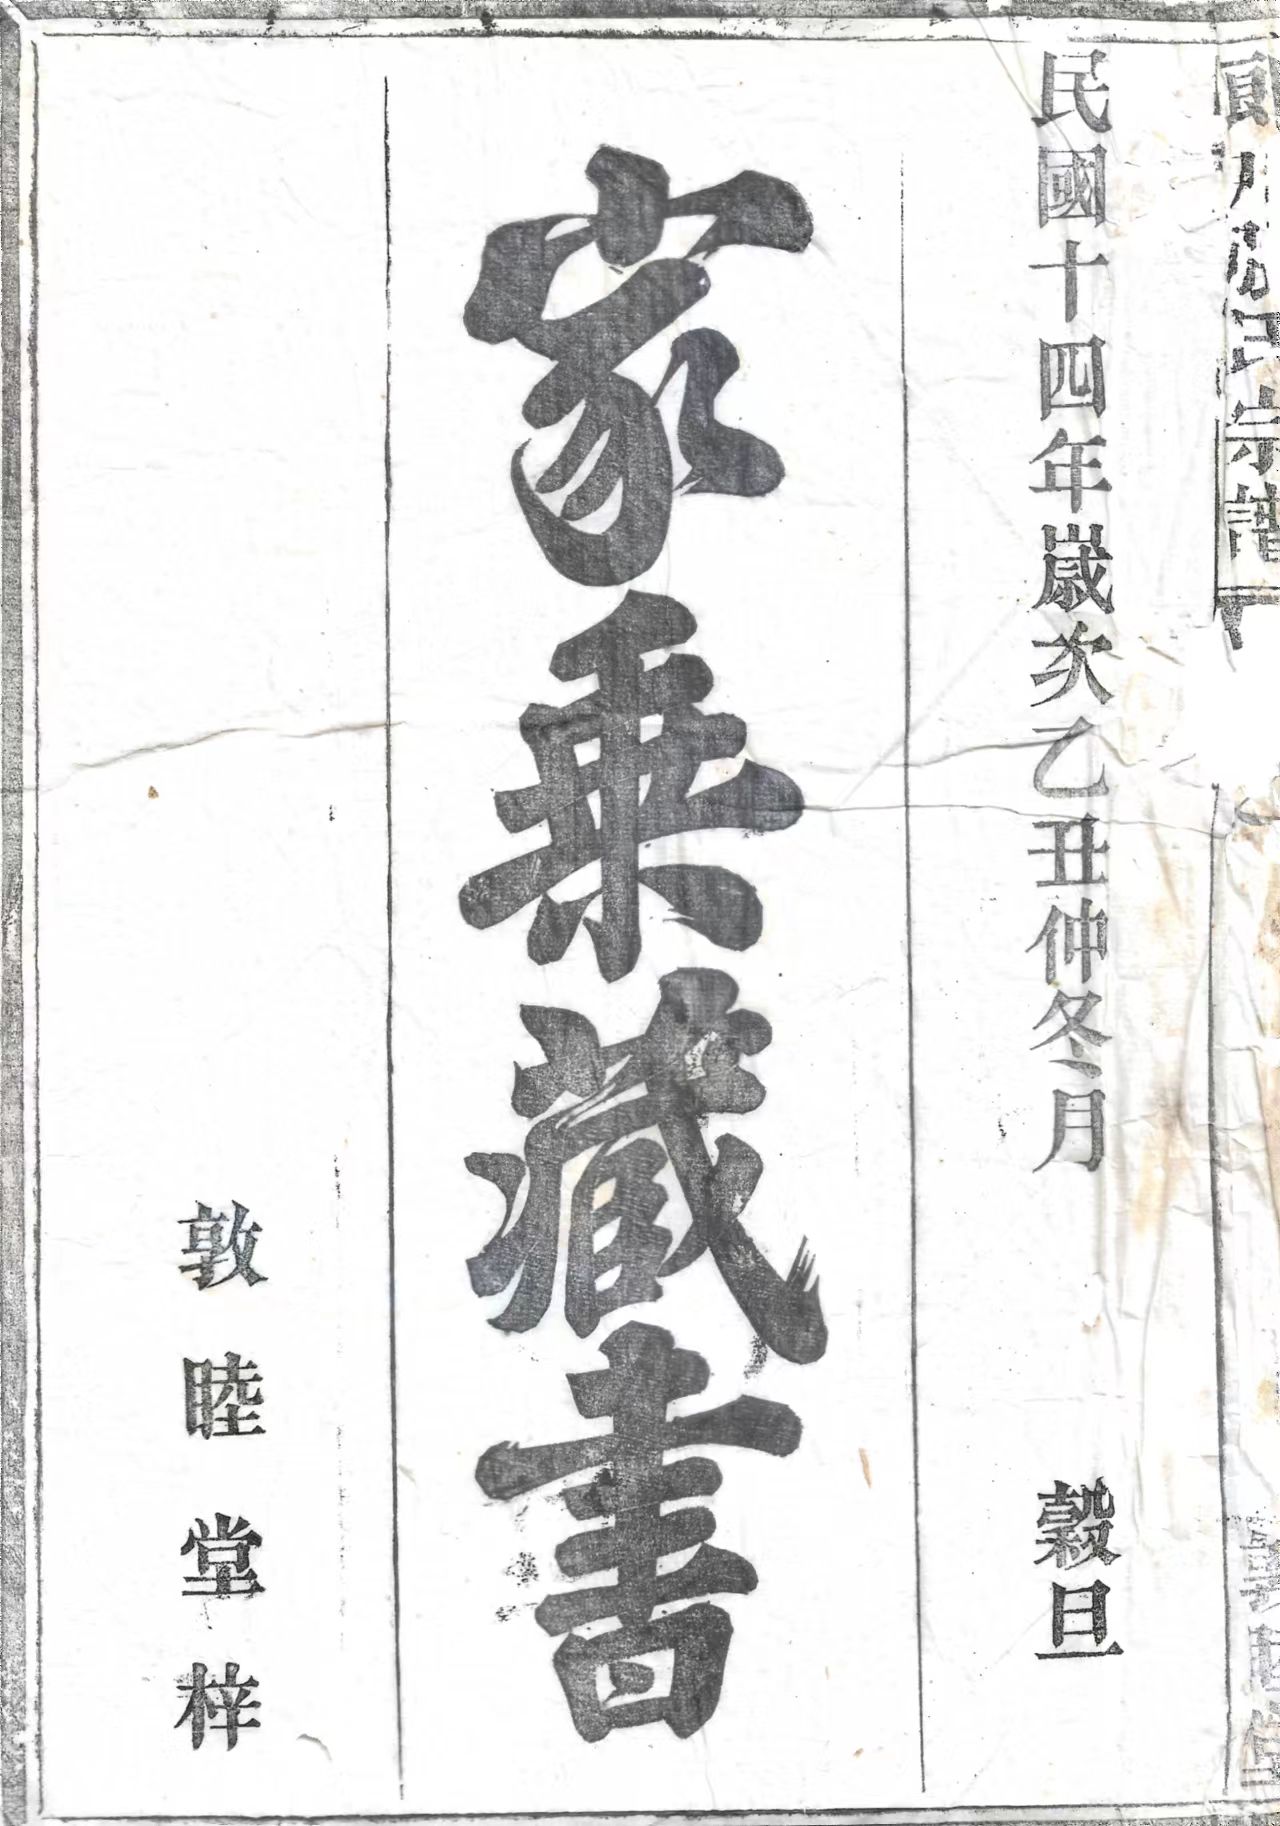 氏宗譜
民國十四年歲次乙丑仲冬月 穀旦
家乗藏書
敦睦堂梓